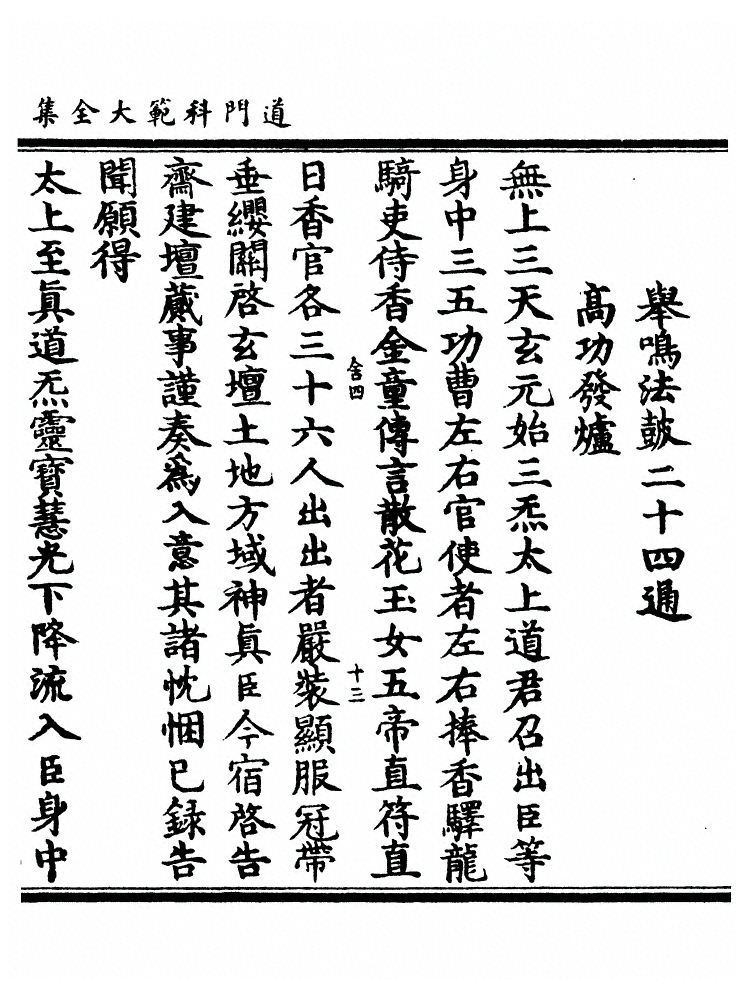 道門科範大全集
舉鳴法鼓二十四通
高功發爐
無上三天玄元始三炁太上道君召出臣等
身中三五功曹左右官使者左右捧香驛龍
騎吏侍香金童傳言散花玉女五帝直符直
舍四
十三
日香官各三十六人出出者嚴裝顯服冠帶
垂纓關啓玄壇土地方域神眞臣今宿啓告
齋建壇蕆事謹奏爲入意其諸忱悃已録告
聞願得
太上至眞道炁靈寶慧光下降流入臣身中